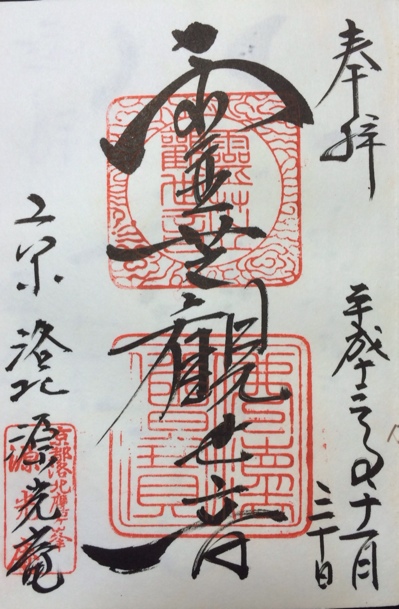 奉拝
平成十三年十一月
三十日
靈芝觀世音
京 洛北 源光庵
京都洛北鷹ケ峰
源光庵